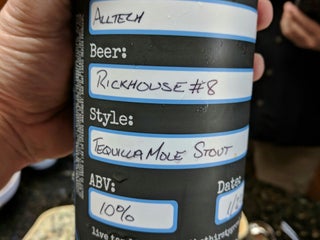 ALLTECH
Beer:
RICKHOUSE #8
Style:
TEQUILLA MOLE STOUT
ABV:
Date:
10%